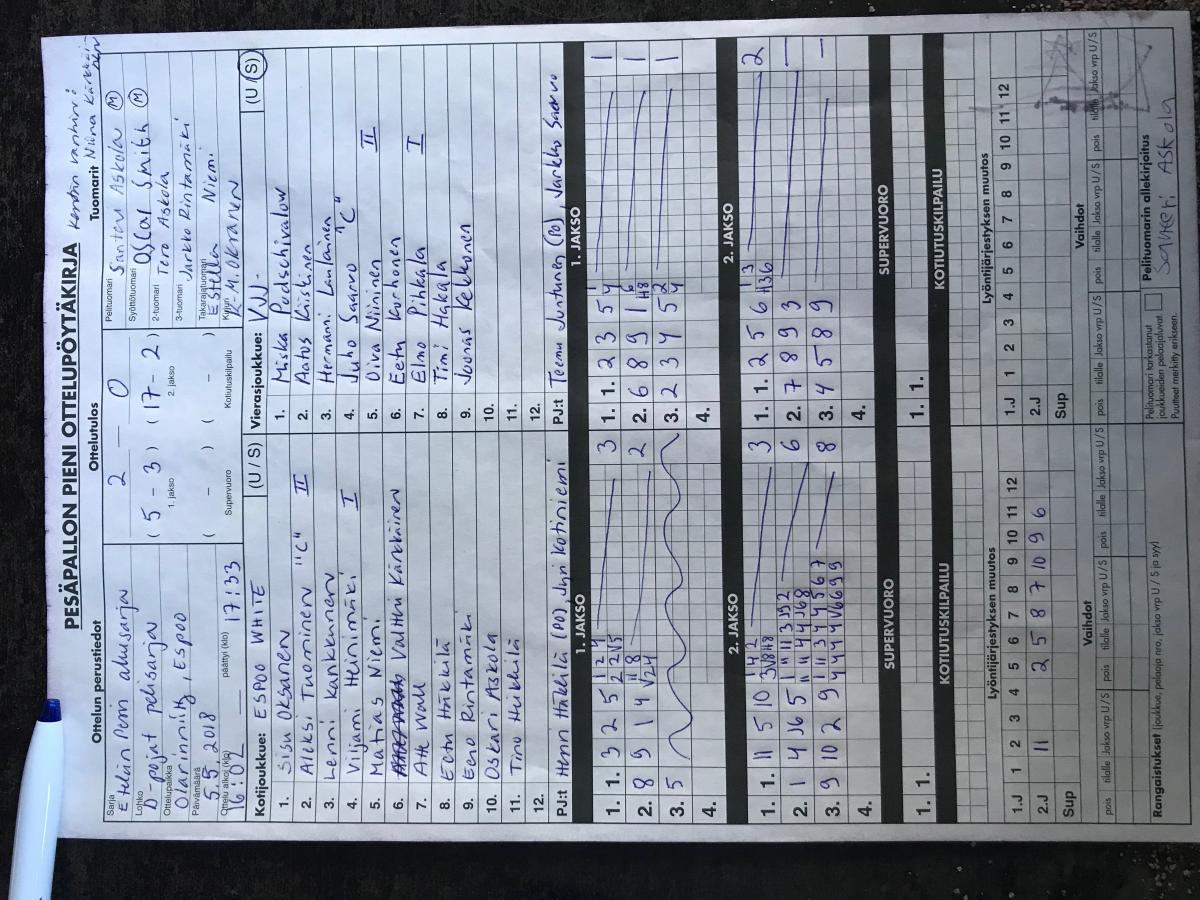 PESÄPALLON PIENI OTTELUPÖYTÄKIRJA
Kentän vanhin:
Ottelun perustiedot
Ottelutulos
Tuomarit Niina Kärkkäinen
Sarja
Etelän Penn aluesarja
Lohko
D pojat pelisarja
Ottelupaikka
Olarinniitty, Espoo
Päivämäärä
5.5 2018
Ottelu alkoi (klo)
16:02
päättyi (klo) 17:33
2 — 0
( 5 - 3 ) ( 17 - 2 )
1. jakso 2. jakso
( - ) ( - )
Supervuoro Kotiutuskilpailu
Pelituomari Santeri Askola (M)
Syöttötuomari Oscar Smith (M)
2-tuomari Tero Askola
3-tuomari Jarkko Rintamäki
Takarajatuomari Estella Niemi
Kirjuri K-M. Oksanen
Kotijoukkue: ESPOO WHITE (U / S)
1. Sisu Oksanen
2. Aleksi Tuominen "C" II
3. Lenni Kankkunen
4. Viljami Heinimäki I
5. Matias Niemi
6. Valtteri Kärkkäinen
7. Atte Wall
8. Eetu Häkkilä
9. Eero Rintamäki
10. Oskari Askola
11. Tino Hukkila
12.
PJ:t Henri Häkkilä (PO), Jyri Kotiniemi
Vierasjoukkue: VM. (U (S)
1. Miska Podschivalow
2. Aatos Käiskinen
3. Hermanni Laulainen
4. Juho Saarvo "C"
5. Oiva Nininen II
6. Eetu Korhonen
7. Elmo Pihkala I
8. Timi Hakala
9. Joonas Kekkonen
10.
11.
12.
PJ:t Teemu Juntunen (PO), Jarkko Saarvo
1. JAKSO
1. 1. 3 2 5 3
2. 8 9 1 4 2
3. 5
4.
1. JAKSO
1. 1. 2 3 5 1
2. 6 8 9 1 1
3. 2 3 4 5 1
4.
2. JAKSO
1. 1. 11 5 10 3
2. 1 4 6 5 6
3. 9 10 2 9 8
4.
2. JAKSO
1. 1. 2 5 6 2
2. 7 8 9 3 —
3. 4 5 8 9 —
4.
SUPERVUORO
1. 1.
SUPERVUORO
1. 1.
KOTIUTUSKILPAILU
KOTIUTUSKILPAILU
Lyöntijärjestyksen muutos
1.J 1 2 3 4 5 6 7 8 9 10 11 12
2.J 11 2 5 8 7 10 9 6
Sup
Lyöntijärjestyksen muutos
1.J 1 2 3 4 5 6 7 8 9 10 11 12
2.J
Sup
Vaihdot
pois tilalle Jakso vrp U/S pois tilalle Jakso vrp U/S pois tilalle Jakso vrp U/S
Vaihdot
pois tilalle Jakso vrp U/S pois tilalle Jakso vrp U/S pois tilalle Jakso vrp U/S
Rangaistukset (joukkue, pelaaja nro, jakso vrp U / S ja syy)
Pelituomari tarkastanut
joukkueiden pelaajaluvat.
Puutteet merkitty erikseen.
Pelituomarin allekirjoitus
Santeri Askola